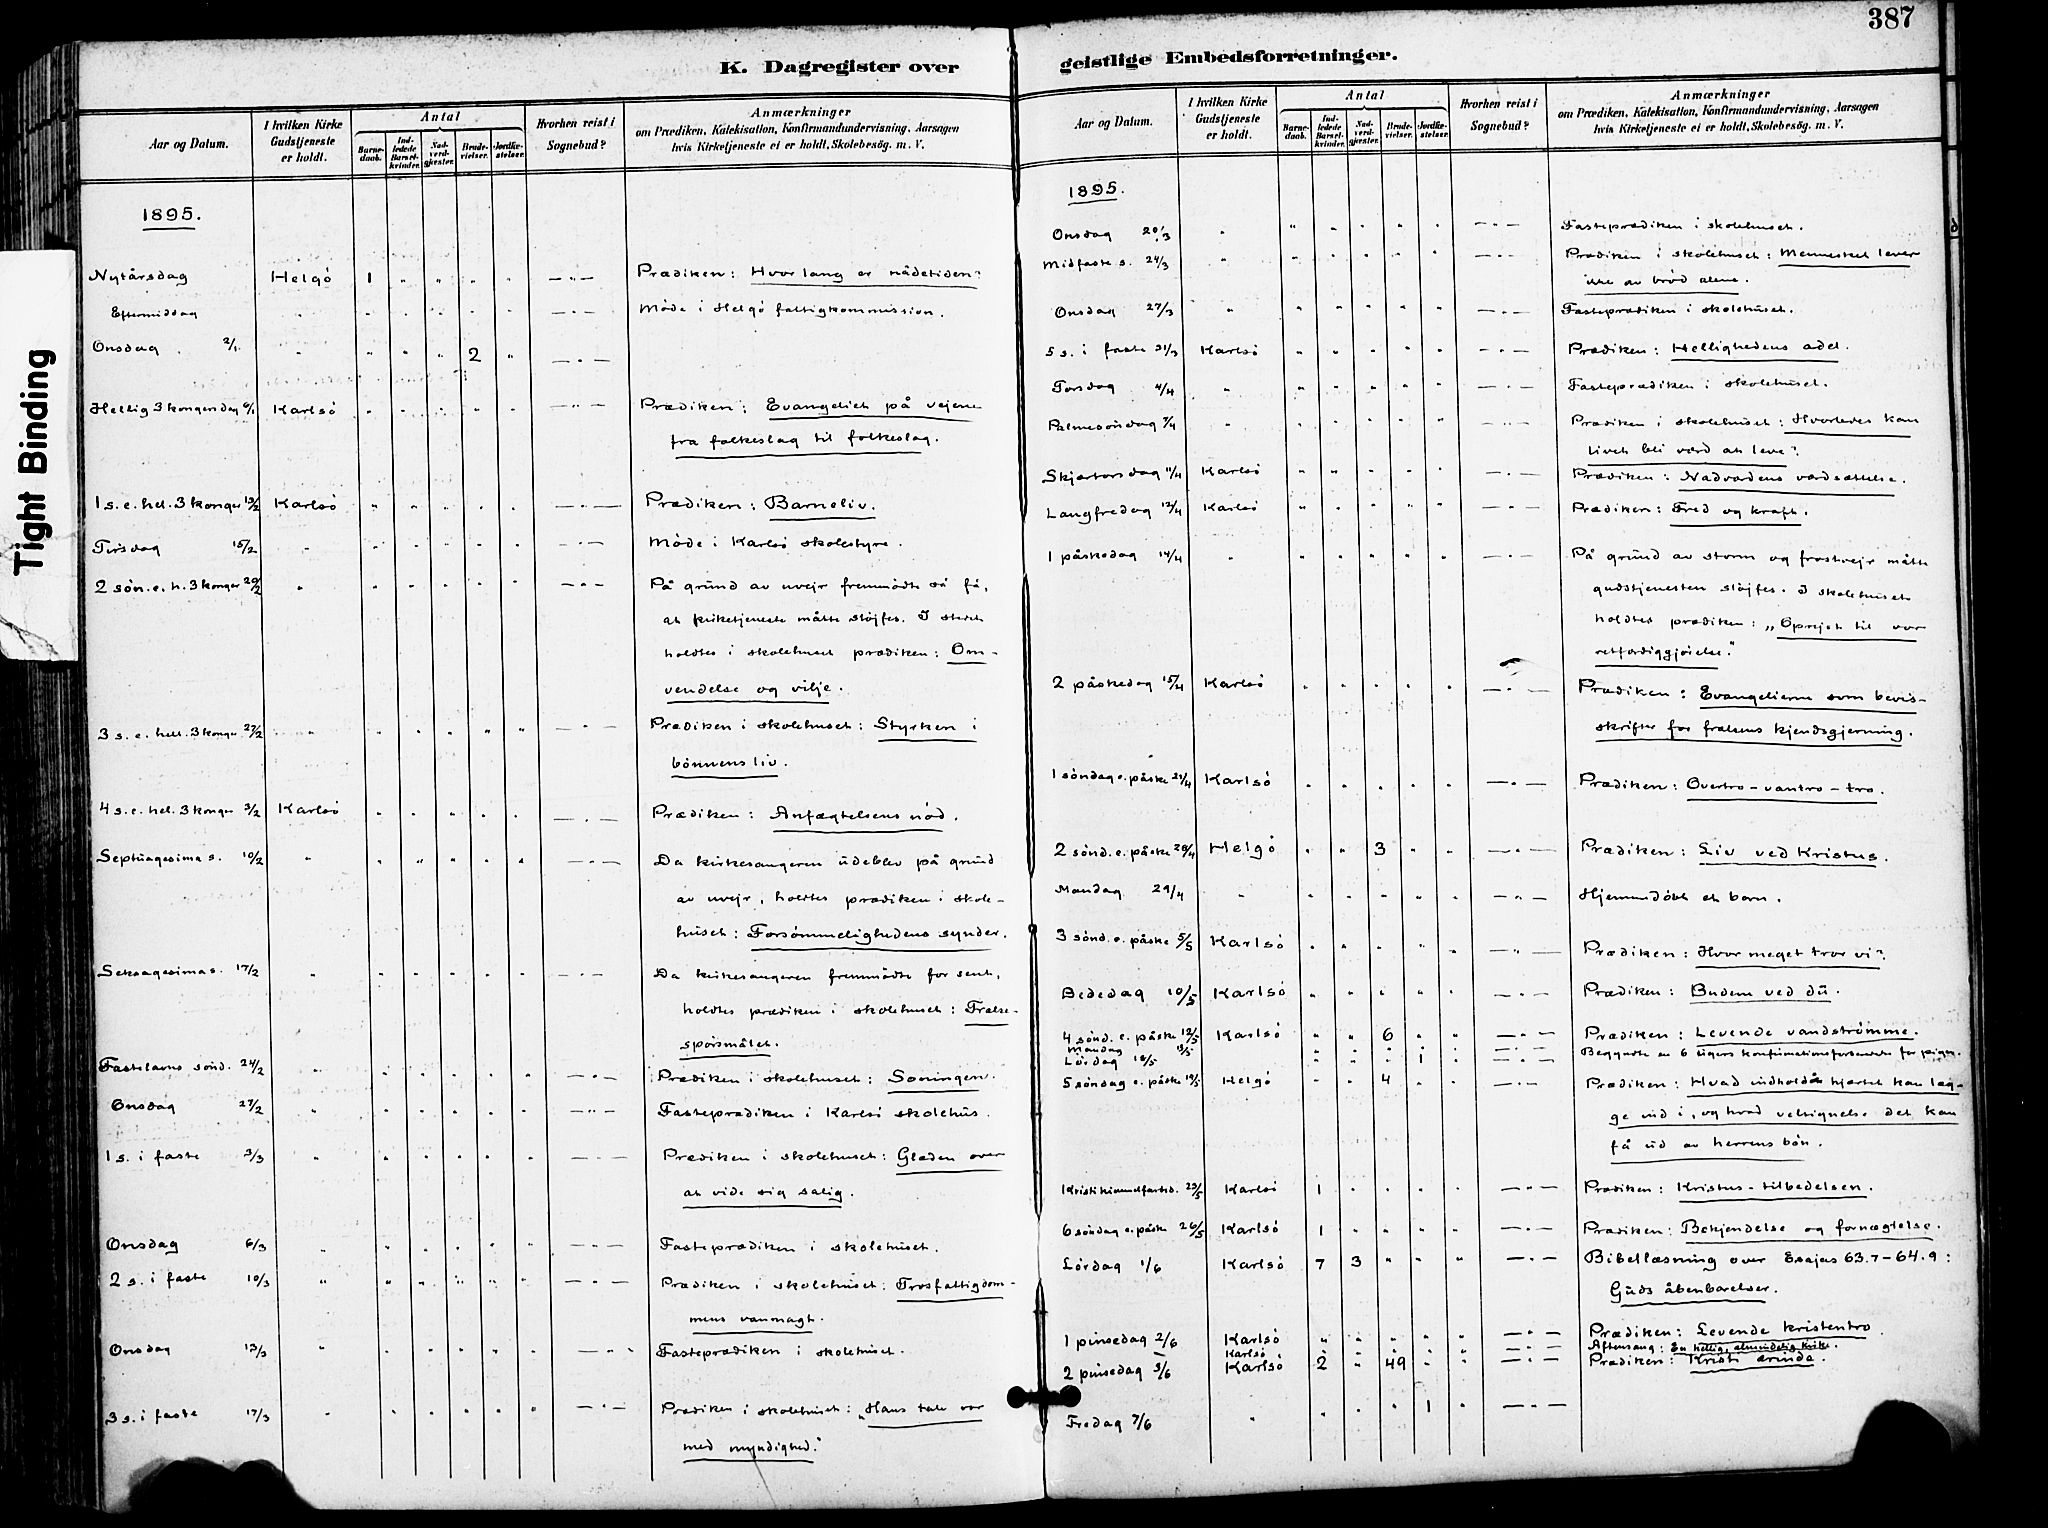 387
K. Dagregister over
geistlige Embedsforretninger.
Tight Binding
Aar og Datum.
I hvilken Kirke Gudstjeneste er holdt.
Antal
Barnedaab.
Indledede Barselkvinder.
Nadverdgjester.
Brudevielser.
Jordfæstelser.
Hvorhen reist i Sognebud?
Anmærkninger
om Prædiken, Katekisation, Konfirmandundervisning, Aarsagen
hvis Kirketjeneste ei er holdt, Skolebesøg. m. V.
1895.
Nytårsdag Helgö 1 " " " " — " — Prædiken: Hvor lang er nådetiden?
Eftermiddag " " " " " " — " — Möde i Helgö fattigkommission.
Onsdag 2/1. " " " " 2 " — " —
Hellig 3 kongersdag 6/1 Karlsö " " " " " — " — Prædiken: Evangeliet på vejene
fra folkeslag til folkeslag.
1 s. e. hel. 3 konger 13/2 Karlsö " " " " " — " — Prædiken: Barneliv.
Tirsdag 15/2 " " " " " " — " — Möde i Karlsö skolestyre.
2 sön. e. h. 3 konger 20/2 " " " " " " — " — På grund av uvejr fremmödte så få,
at kirketjeneste måtte slöjfes. I stedet
holdtes i skolehuset prædiken: Om-
vendelse og vilje.
3 s. e. hell. 3 konger 27/2 " " " " " " — " — Prædiken i skolehuset: Styrken i
bönnens liv.
4 s. e. hel. 3 konger 3/2 Karlsö " " " " " — " — Prædiken: Anfægtelsens nöd.
Septuagesima s. 10/2 " " " " " " — " — Da kirkesangeren udeblev på grund
av uvejr, holdtes prædiken i skole-
huset: Forsömmelighedens synder.
Seksagesima s. 17/2 " " " " " " — " — Da kirkesangeren fremmödte for sent,
holdtes prædiken i skolehuset: Frelse-
spörsmålet.
Fastelavns sönd. 24/2 " " " " " " — " — Prædiken i skolehuset: Soningen.
Onsdag 27/2 " " " " " " — " — Fasteprædiken i Karlsö skolehus.
1 s. i faste 3/3 " " " " " " — " — Prædiken i skolehuset: Glæden over
at vide sig salig.
Onsdag 6/3 " " " " " " — " — Fasteprædiken i skolehuset.
2 s. i faste 10/3 " " " " " " — " — Prædiken i skolehuset: Trosfattigdom-
mens vanmagt.
Onsdag 13/3 " " " " " " — " — Fasteprædiken i skolehuset.
3 s. i faste 17/3 " " " " " " — " — Prædiken i skolehuset: „Hans tale var
med myndighed."
Aar og Datum.
I hvilken Kirke Gudstjeneste er holdt.
Antal
Barnedaab.
Indledede Barselkvinder.
Nadverdgjester.
Brudevielser.
Jordfæstelser.
Hvorhen reist i Sognebud?
Anmærkninger
om Prædiken, Katekisation, Konfirmandundervisning, Aarsagen
hvis Kirketjeneste ei er holdt, Skolebesøg. m. V.
1895.
Onsdag 20/3 " " " " " " — " — Fasteprædiken i skolehuset.
Midfaste s. 24/3 " " " " " " — " — Prædiken i skolehuset: Mennesket lever
ikke av bröd alene.
Onsdag 27/3 " " " " " " — " — Fasteprædiken i skolehuset.
5 s. i faste 31/3 Karlsö " " " " " — " — Prædiken: Hellighedens adel.
Torsdag 4/4 " " " " " " — " — Fasteprædiken i skolehuset.
Palmesöndag 7/4 " " " " " " — " — Prædiken i skolehuset: Hvorledes kan
livet bli værd at leve?
Skjærtorsdag 11/4 Karlsö " " " " " — " — Prædiken: Nadvardens værdsættelse.
Langfredag 12/4 Karlsö " " " " " — " — Prædiken: Fred og kraft.
1 påskedag 14/4 " " " " " " — " — På grund av storm og frostvejr måtte
gudstjenesten slöjfes. I skolehuset
holdtes prædiken: „Oprejst til vor
retfærdiggjörelse."
2 påskedag 15/4 Karlsö " " " " " — " — Prædiken: Evangelierne som bevis-
skrifter for frelsens kjendsgjerning.
1 söndag e. påske 21/4 Karlsö " " " " " — " — Prædiken: Overtro - vantro - tro.
2 sönd. e. påske 28/4 Helgö " " 3 " " — " — Prædiken: Liv ved Kristus.
Mandag 29/4 " " " " " " — " — Hjemmedöbt et barn.
3 sönd. e. påske 5/5 Karlsö " " " " " — " — Prædiken: Hvor meget tror vi?
Bededag 10/5 Karlsö " " " " " — " — Prædiken: Budem ved du.
4 sönd. e. påske 12/5 Karlsö " " 6 " " — " — Prædiken: Levende vandströmme.
Mandag 13/5 " " " " " — " — Begyndte en 6 ugers konfirmationsforberedelse for piger.
Lördag 18/5 " " " 1 " — " —
5 söndag e. påske 19/5 Helgö " " 4 " " — " — Prædiken: Hvad indhold hjertet kan læg-
ge ind i, og hvad velsignelse det kan
få ud av herrens bön.
Kristi himmelfartsd. 23/5 Karlsö 1 " " " " — " — Prædiken: Kristus-tilbedelsen.
6 söndag e. påske 26/5 Karlsö 1 " " " " — " — Prædiken: Bekjendelse og fornægtelse.
Lördag 1/6 Karlsö 7 3 " " " — " — Bibellæsning over Esajas 63.7-64.9:
Guds åbenbarelser.
1 pinsedag 2/6 Karlsö " " " " " — " — Prædiken: Levende kristentro.
Karlsö " " " " " — " — Aftensang: En hellig, almindelig kirke.
2 pinsedag 3/6 Karlsö 2 " 49 " " — " — Prædiken: Kristi ærinde.
Fredag 7/6 " " " " 1 " — " —